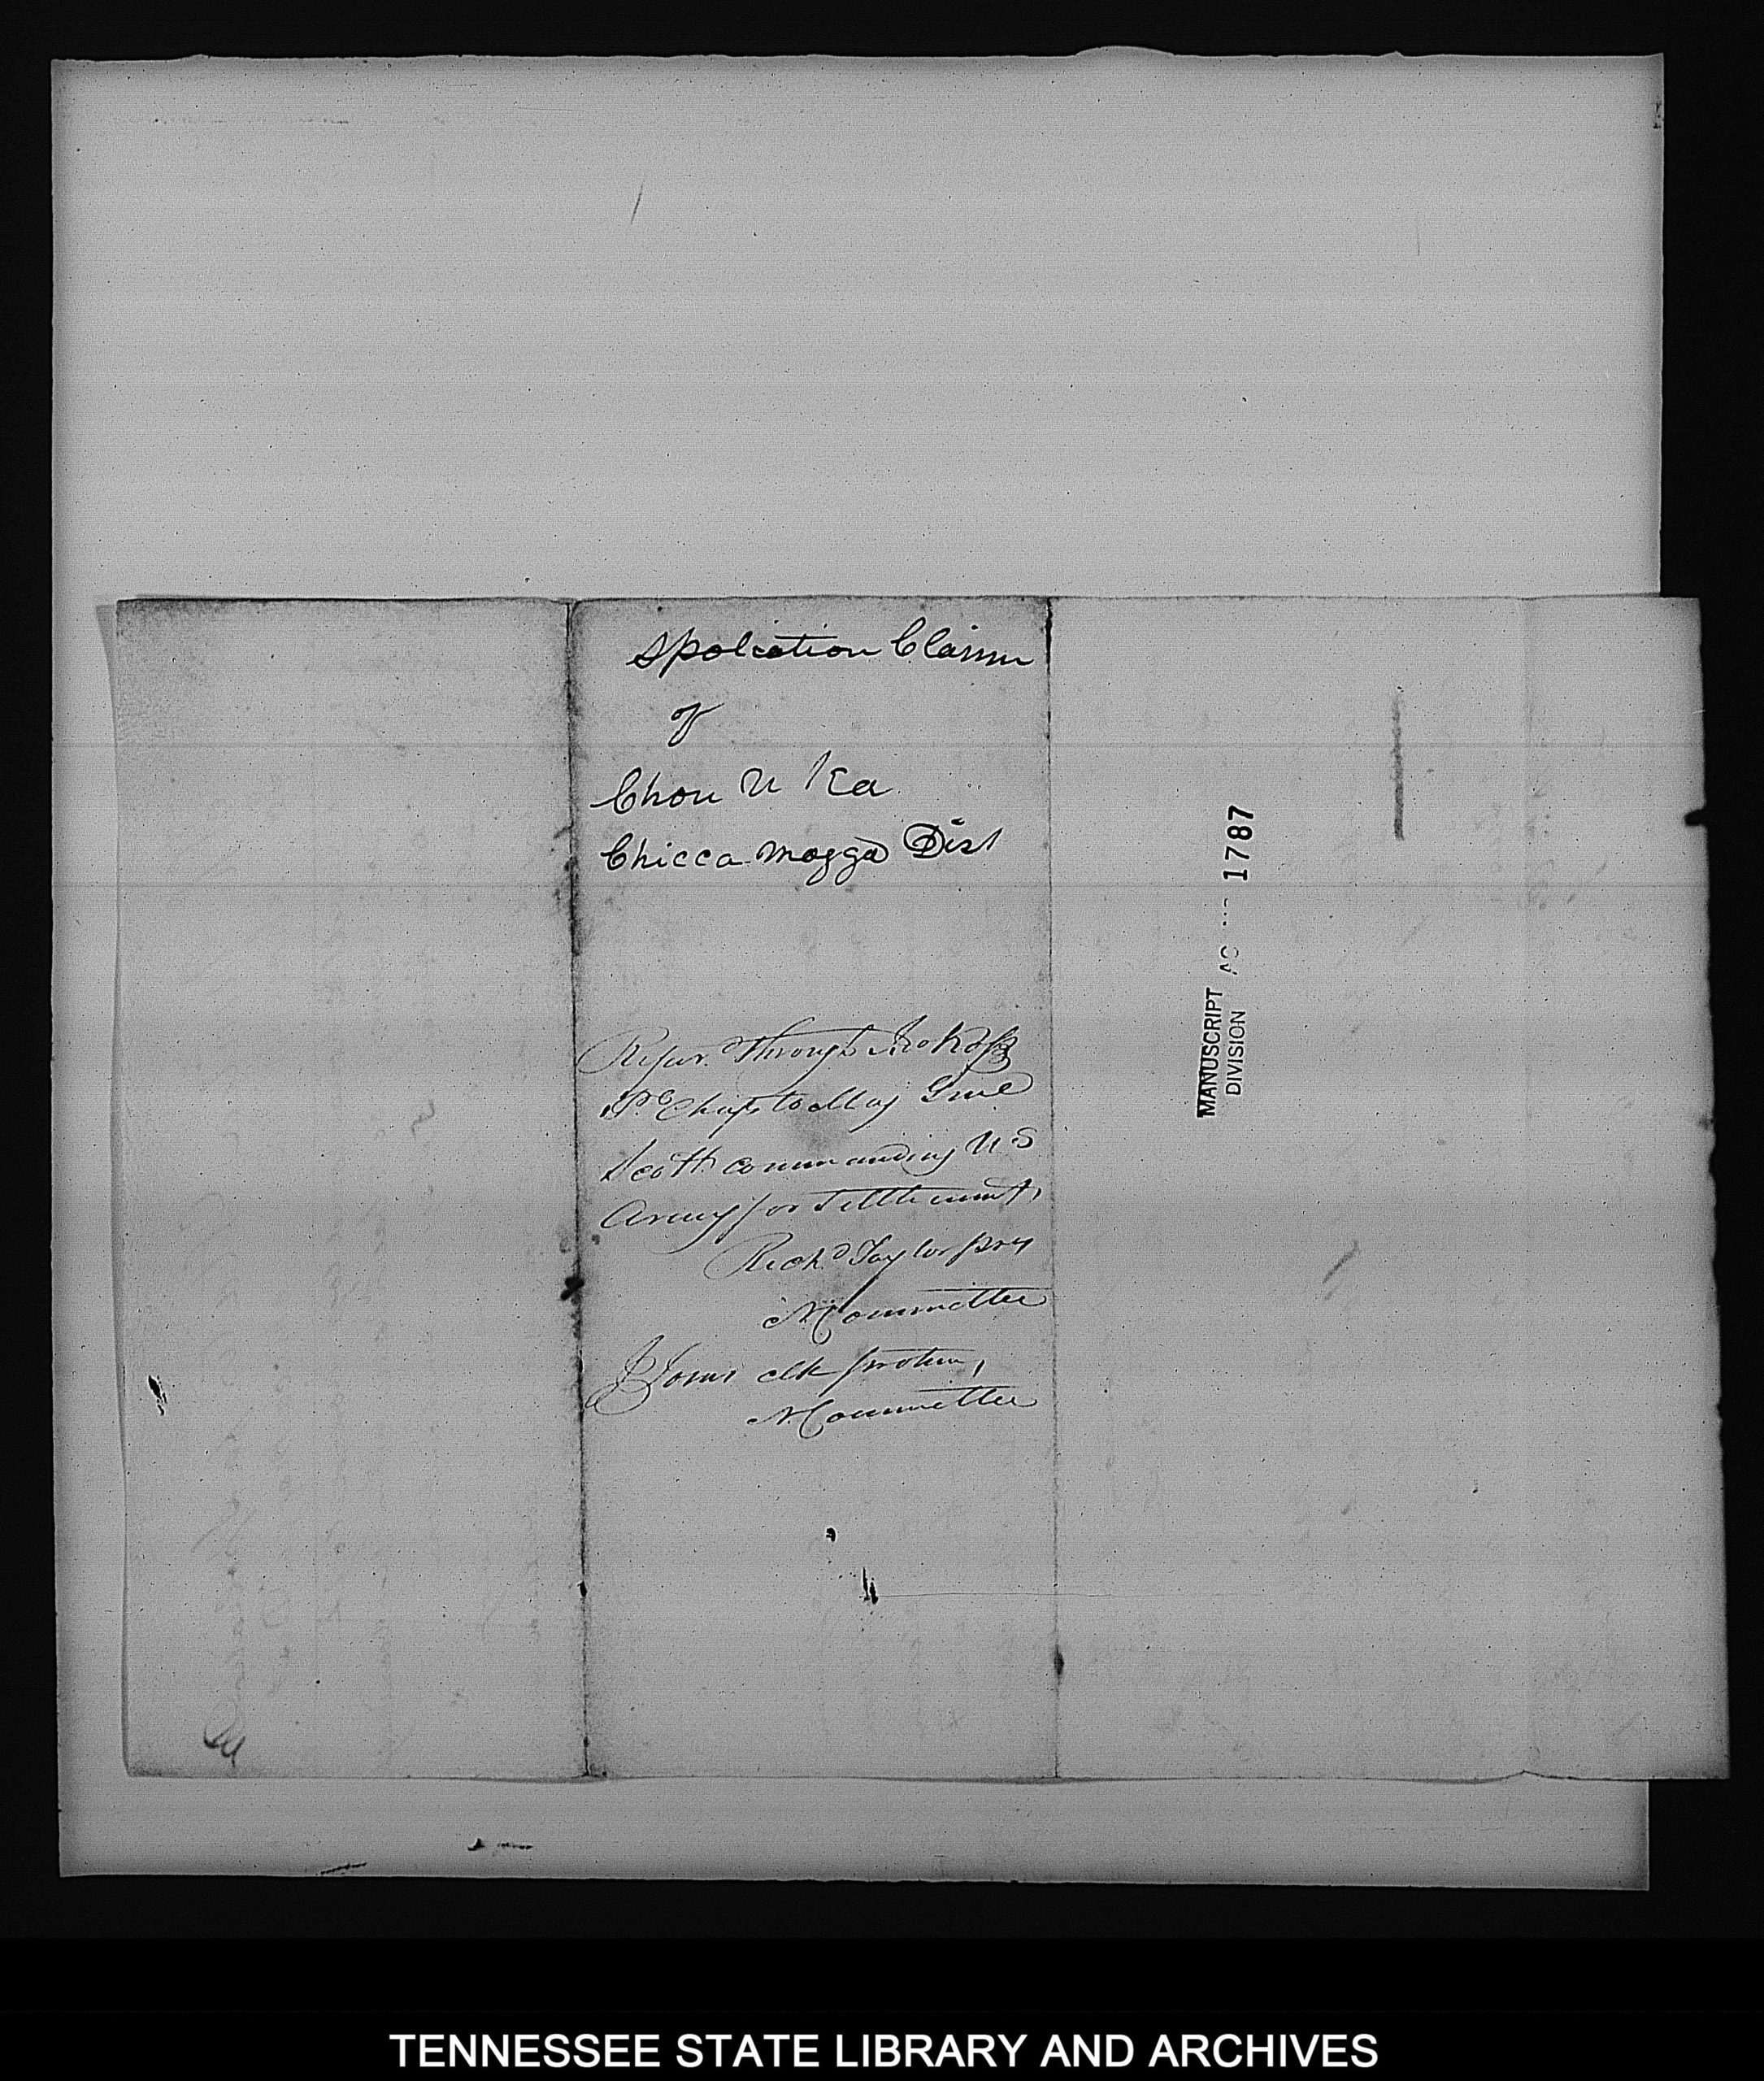 Spoliation Claim
of
Chou U Ka
Chicca mogga Dist
Refer.d Through Jno Ross
Pl Chief to Maj Genl
Scott commanding U.S
Army for Settlement,
Rich.d Taylor pres
N. Committee
clk protem,
N. Committee
MANUSCRIPT
DIVISION
AC 1787
TENNESSEE STATE LIBRARY AND ARCHIVES